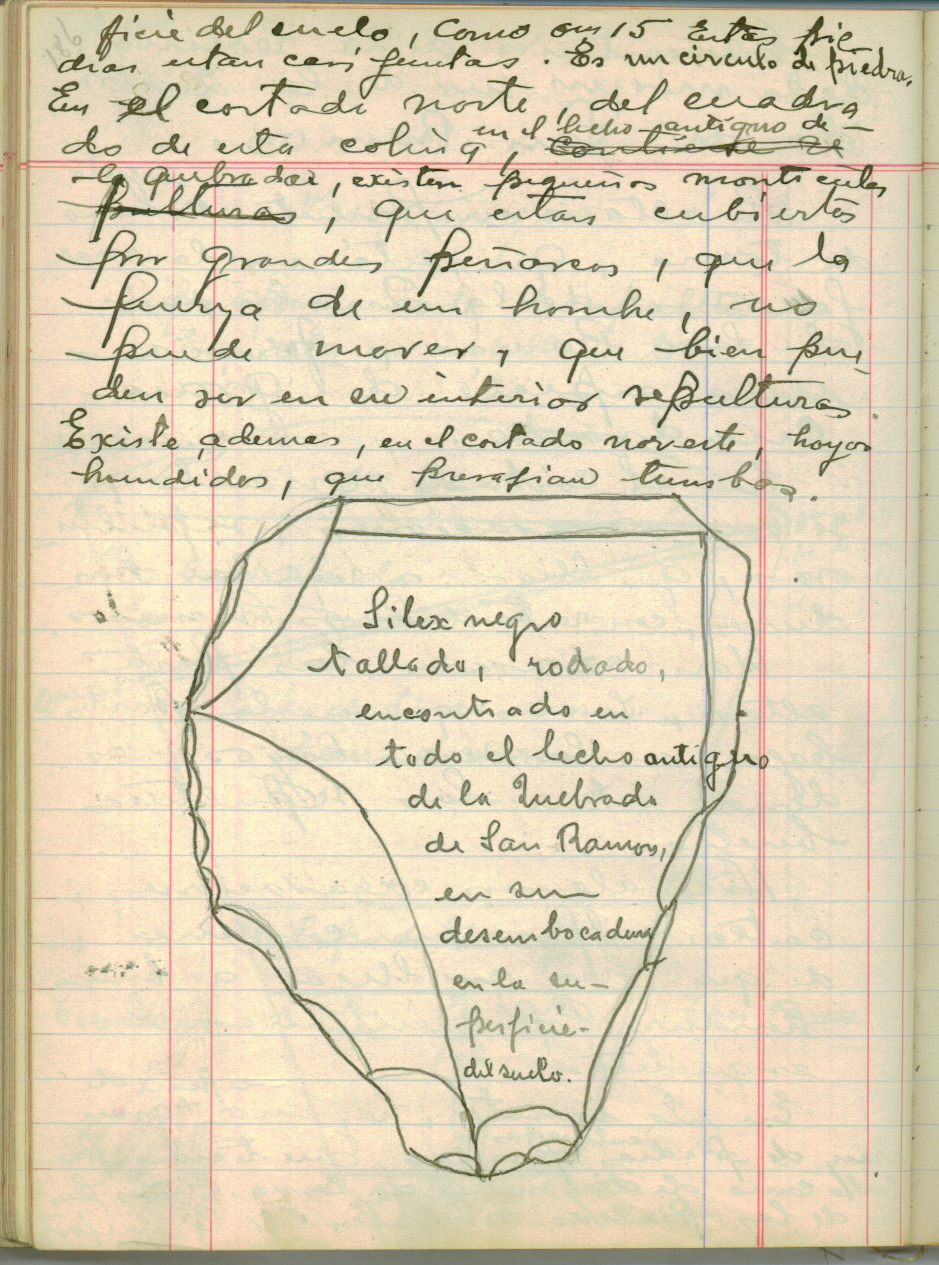 ficie del suelo, como 0m15 Estas pie
dras estan casi juntas. Es un circulo de piedras.
En el cortado norte, del cuadra
do de esta colina, en el lecho antiguo de
contiene se
la quebrada, existen pequeños monticulos
pulturas, que estan cubiertos
por grandes peñascos, que la
fuerza de un hombre, no
puede mover, que bien pue
den ser en su interior sepulturas.
Existe, ademas, en el cortado noreste, hoyos
hundidos, que presagian tumbas.
Silex negro
tallado, rodado,
encontrado en
todo el lecho antiguo
de la Quebrada
de San Ramon,
en su
desembocadura
en la su-
perficie-
del suelo.